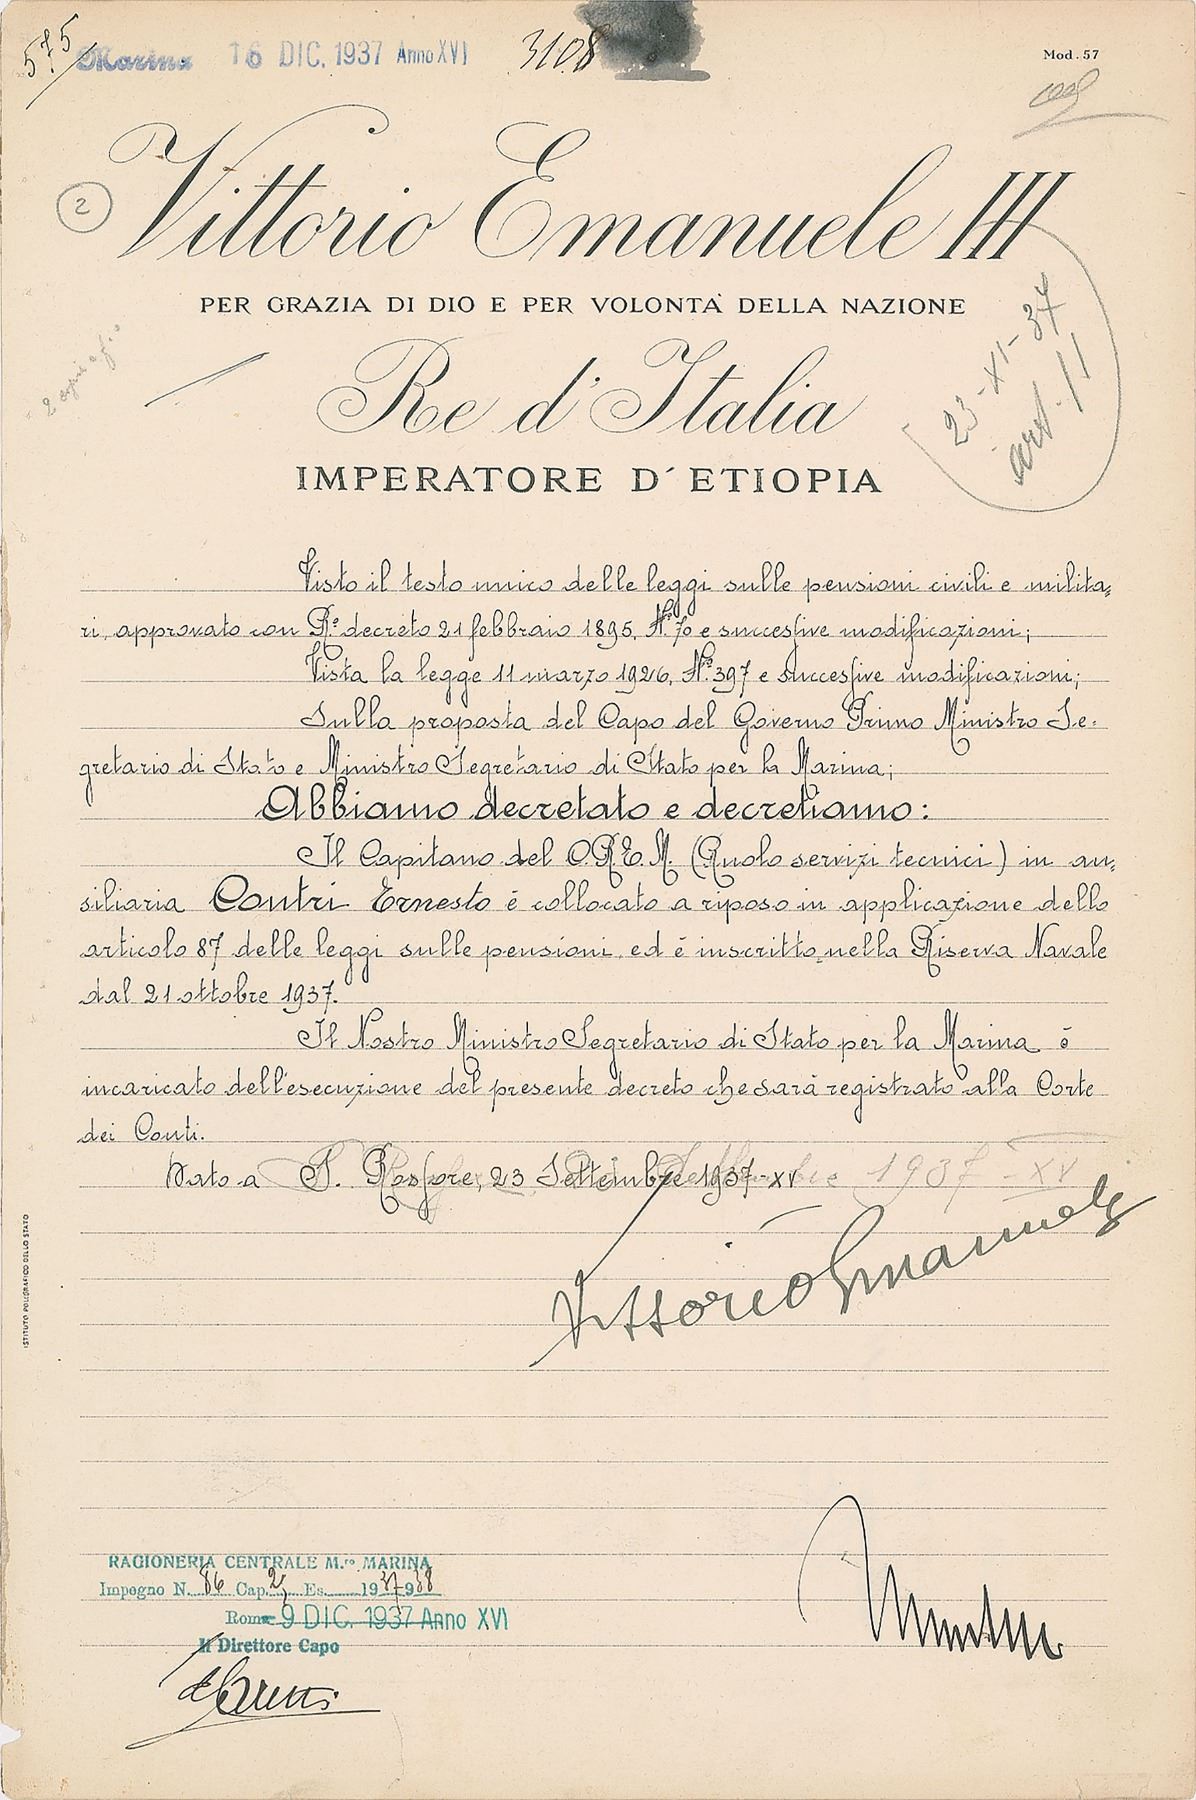 575
Marina 16 DIC. 1937 Anno XVI 3108
Mod. 57
2
Vittorio Emanuele III
PER GRAZIA DI DIO E PER VOLONTÀ DELLA NAZIONE
Re d'Italia
IMPERATORE D'ETIOPIA
23-XI-37
art. 11
Visto il testo unico delle leggi sulle pensioni civili e milita=
ri, approvato con R.º decreto 21 febbraio 1895, N.º 70 e successive modificazioni;
Vista la legge 11 marzo 1926, N.º 397 e successive modificazioni;
Sulla proposta del Capo del Governo Primo Ministro Se=
gretario di Stato e Ministro Segretario di Stato per la Marina;
Abbiamo decretato e decretiamo:
Il Capitano del C.R.E.M. (Ruolo servizi tecnici) in au=
siliaria Contri Ernesto è collocato a riposo in applicazione dello
articolo 87 delle leggi sulle pensioni, ed è inscritto nella Riserva Navale
dal 21 ottobre 1937.
Il Nostro Ministro Segretario di Stato per la Marina è
incaricato dell'esecuzione del presente decreto che sarà registrato alla Corte
dei Conti.
Dato a S. Rossore, 23 Settembre 1937-XV
1937-XV
Vittorio Emanuele
ISTITUTO POLIGRAFICO DELLO STATO
RAGIONERIA CENTRALE M.ro MARINA
Impegno N. 86 Cap. 2 Es. 1937-938
Roma 9 DIC. 1937 Anno XVI
Il Direttore Capo